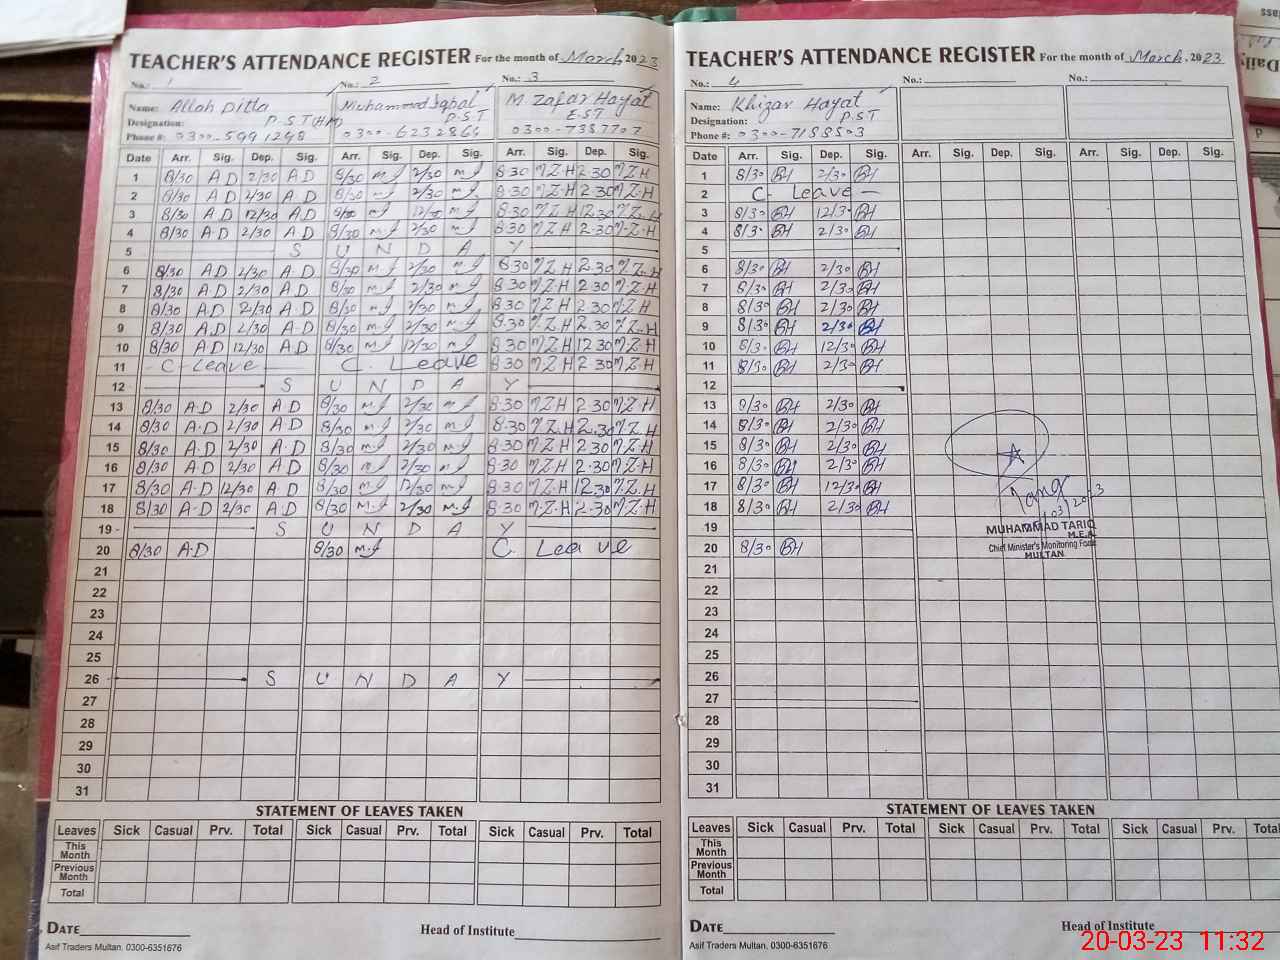 TEACHER'S ATTENDANCE REGISTER For the month of March, 2023
No.: 1 No.: 2 No.: 3
Name: Allah Ditta Muhammad Iqbal M Zafar Hayat
Designation: P.S.T(HM) P.S.T E.ST
Phone #: 0300-5991298 0300-6232864 0300-7387707
Date Arr. Sig. Dep. Sig. Arr. Sig. Dep. Sig. Arr. Sig. Dep. Sig.
1 8/30 AD 2/30 AD 8/30 m.I 2/30 m.I 8.30 M.Z.H 2.30 M.Z.H
2 8/30 AD 2/30 AD 8/30 m.I 2/30 m.I 8.30 M.Z.H 2.30 M.Z.H
3 8/30 AD 12/30 AD m.I m.I 8.30 M.Z.H 12.30 M.Z.H
4 8/30 A.D 2/30 AD 8/30 m.I 2/30 m.I 8.30 M.Z.H 2.30 M.Z.H
5 S U N D A Y
6 8/30 AD 2/30 AD 8/30 m.I 2/30 m.I 8.30 M.Z.H 2.30 M.Z.H
7 8/30 A.D 2/30 A.D 8/30 m.I 2/30 m.I 8.30 M.Z.H 2.30 M.Z.H
8 8/30 A.D 2/30 A.D 8/30 m.I 2/30 m.I 8.30 M.Z.H 2.30 M.Z.H
9 8/30 A.D 2/30 A.D 8/30 m.I 2/30 m.I 8.30 M.Z.H 2.30 M.Z.H
10 8/30 A.D 12/30 AD 8/30 m.I 12/30 m.I 8.30 M.Z.H 12.30 M.Z.H
11 C-Leave C. Leave 8.30 M.Z.H 2.30 M.Z.H
12 S U N D A Y
13 8/30 A.D 2/30 AD 8/30 m.I 2/30 m.I 8.30 M.Z.H 2.30 M.Z.H
14 8/30 A.D 2/30 A.D 8/30 m.I 2/30 m.I 8.30 M.Z.H 2.30 M.Z.H
15 8/30 A.D 2/30 A.D 8/30 m.I 2/30 m.I 8.30 M.Z.H 2.30 M.Z.H
16 8/30 A.D 2/30 A.D 8/30 m.I 2/30 m.I 8.30 M.Z.H 2.30 M.Z.H
17 8/30 A.D 12/30 A.D 8/30 m.I 12/30 m.I 8.30 M.Z.H 12.30 M.Z.H
18 8/30 A.D 2/30 A.D 8/30 M.I 2/30 M.I 8.30 M.Z.H 2.30 M.Z.H
19 S U N D A Y
20 8/30 A.D 8/30 M.I C. Leave
21
22
23
24
25
26 S U N D A Y
27
28
29
30
31
STATEMENT OF LEAVES TAKEN
Leaves Sick Casual Prv. Total Sick Casual Prv. Total Sick Casual Prv. Total
This Month
Previous Month
Total
DATE Head of Institute
Asif Traders Multan. 0300-6351676
TEACHER'S ATTENDANCE REGISTER For the month of March, 2023
No.: 4 No.: No.:
Name: Khizar Hayat
Designation: P.S.T
Phone #: 0300-7188503
Date Arr. Sig. Dep. Sig. Arr. Sig. Dep. Sig. Arr. Sig. Dep. Sig.
1 8/30 2/30
2 C- Leave
3 8/30 12/30
4 8/30 2/30
5
6 8/30 2/30
7 8/30 2/30
8 8/30 2/30
9 8/30 2/30
10 8/30 12/30
11 8/30 2/30
12
13 8/30 2/30
14 8/30 2/30
15 8/30 2/30
16 8/30 2/30
17 8/30 12/30
18 8/30 2/30
19
20 8/30
21
22
23
24
25
26
27
28
29
30
31
MUHAMMAD TARIQ
M.E.A.
Chief Minister's Monitoring Force
MULTAN
STATEMENT OF LEAVES TAKEN
Leaves Sick Casual Prv. Total Sick Casual Prv. Total Sick Casual Prv. Total
This Month
Previous Month
Total
DATE Head of Institute
Asif Traders Multan. 0300-6351676
20-03-23 11:32